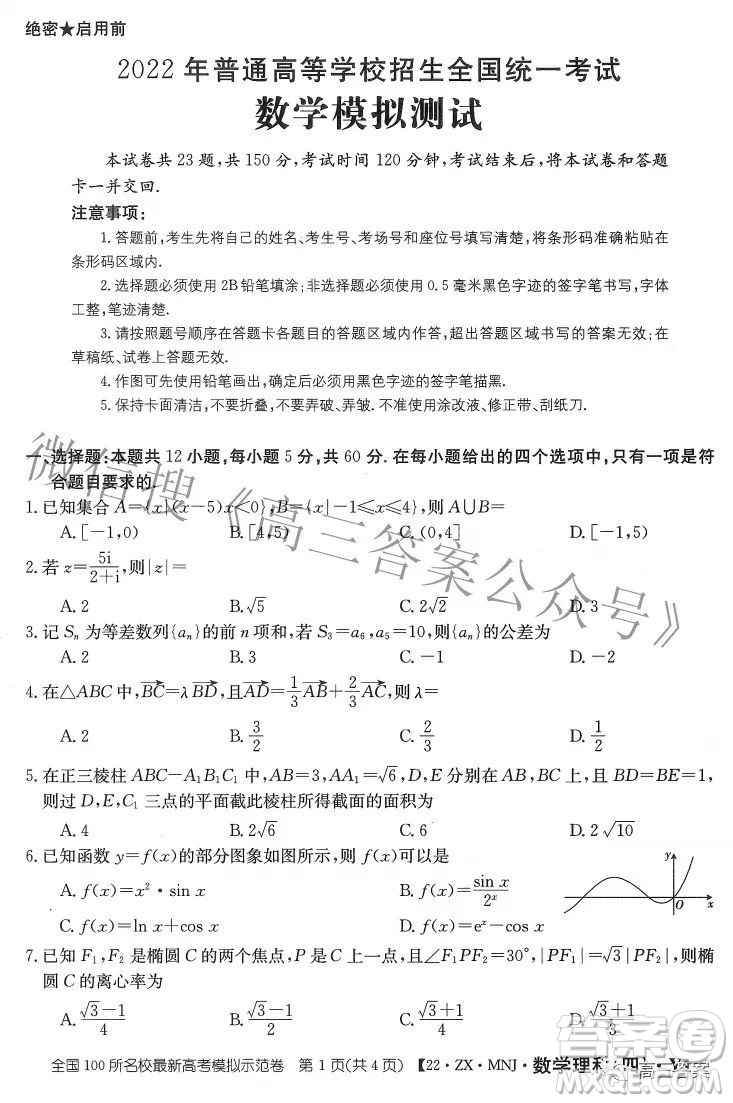 绝密★启用前
2022 年普通高等学校招生全国统一考试
数学模拟测试
本试卷共 23 题,共 150 分,考试时间 120 分钟,考试结束后,将本试卷和答题
卡一并交回.
注意事项:
1. 答题前,考生先将自己的姓名、考生号、考场号和座位号填写清楚,将条形码准确粘贴在
条形码区域内.
2. 选择题必须使用 2B 铅笔填涂;非选择题必须使用 0.5 毫米黑色字迹的签字笔书写,字体
工整,笔迹清楚.
3. 请按照题号顺序在答题卡各题目的答题区域内作答,超出答题区域书写的答案无效;在
草稿纸、试卷上答题无效.
4. 作图可先使用铅笔画出,确定后必须用黑色字迹的签字笔描黑.
5. 保持卡面清洁,不要折叠,不要弄破、弄皱.不准使用涂改液、修正带、刮纸刀.
一、选择题:本题共 12 小题,每小题 5 分,共 60 分.在每小题给出的四个选项中,只有一项是符
合题目要求的.
1. 已知集合 A={x|(x-5)x<0},B={x|-1≤x≤4},则 A∪B=
A. [-1,0) B. [4,5) C. (0,4] D. [-1,5)
2. 若 z=5i/(2+i),则|z|=
A. 2 B. √5 C. 2√2 D. 3
3. 记 Sₙ 为等差数列{aₙ}的前 n 项和,若 S₃=a₆,a₅=10,则{aₙ}的公差为
A. 2 B. 3 C. -1 D. -2
4. 在△ABC 中,BC→=λBD→,且AD→=1/3 AB→+2/3 AC→,则 λ=
A. 2 B. 3/2 C. 2/3 D. 1/2
5. 在正三棱柱 ABC-A₁B₁C₁ 中,AB=3,AA₁=√6,D,E 分别在 AB,BC 上,且 BD=BE=1,
则过 D,E,C₁ 三点的平面截此棱柱所得截面的面积为
A. 4 B. 2√6 C. 6 D. 2√10
6. 已知函数 y=f(x)的部分图象如图所示,则 f(x)可以是
A. f(x)=x²·sin x B. f(x)=sin x/2ˣ
C. f(x)=ln x+cos x D. f(x)=eˣ-cos x
y
O
x
7. 已知 F₁,F₂ 是椭圆 C 的两个焦点,P 是 C 上一点,且∠F₁PF₂=30°,|PF₁|=√3|PF₂|,则椭
圆 C 的离心率为
A. (√3-1)/4 B. (√3-1)/2 C. (√3+1)/4 D. (√3+1)/3
全国 100 所名校最新高考模拟示范卷 第 1 页(共 4 页) 【22·ZX·MNJ·数学理科
微信搜《高三答案公众号》